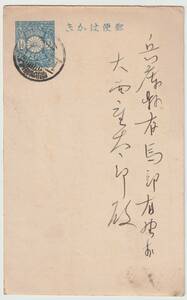 郵便はかき
兵庫縣有馬郡有馬町
大西重太郎殿